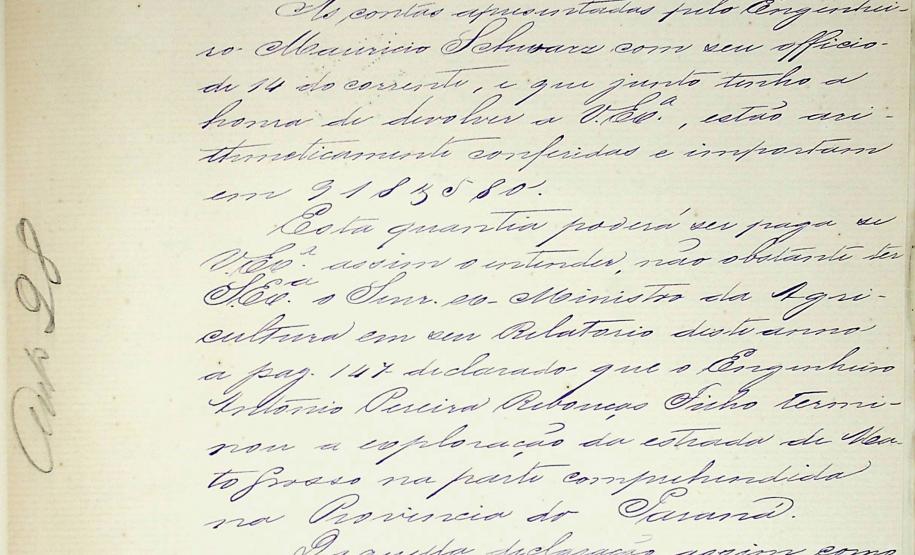 As contas apresentadas pelo Engenhei-
ro Mauricio Schwarz com seu officio
de 14 do corrente, e que junto tenho a
honra de devolver a V. Exª., estão ari-
thmeticamente conferidas e importam
em 918$580.
Esta quantia poderá ser paga se
V. Exª. assim o entender, não obstante ter
S. Exª. o Senr. ex-Ministro da Agri-
cultura em seu Relatorio deste anno
a pag. 147 declarado que o Engenheiro
Antônio Pereira Rebouças Filho termi-
nou a exploração da estrada de Ma-
to Grosso na parte comprehendida
na Provincia do Paraná.
Daquella declaração assim como
28